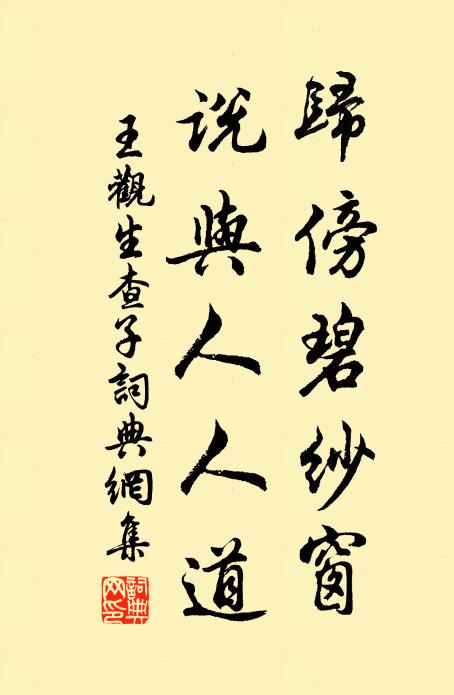 歸傍碧紗窗
說與人人道
王觀生查子詞典網集
詞典网印